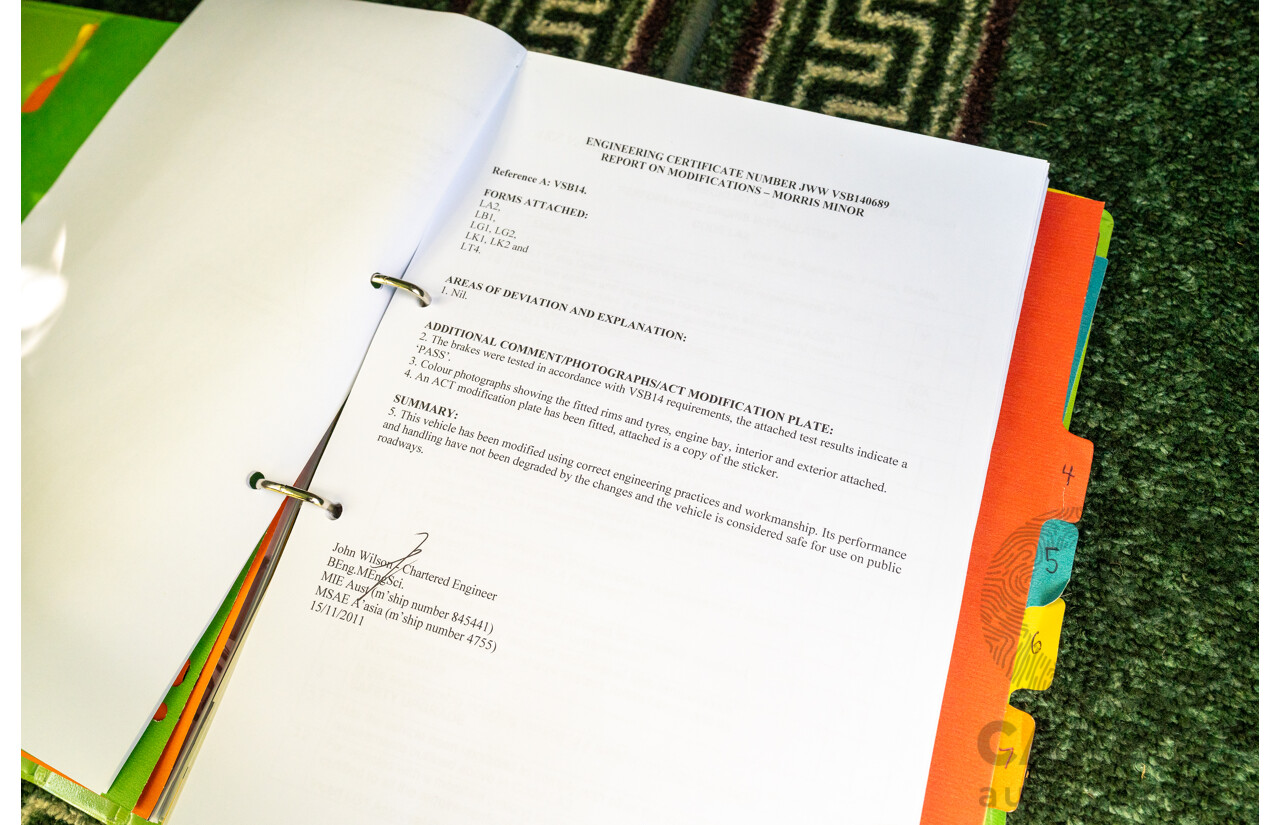 ENGINEERING CERTIFICATE NUMBER JWW VSB140689
REPORT ON MODIFICATIONS – MORRIS MINOR
Reference A: VSB14.
FORMS ATTACHED:
LA2,
LB1,
LG1, LG2,
LK1, LK2 and
LT4.
AREAS OF DEVIATION AND EXPLANATION:
1. Nil.
ADDITIONAL COMMENT/PHOTOGRAPHS/ACT MODIFICATION PLATE:
2. The brakes were tested in accordance with VSB14 requirements, the attached test results indicate a
‘PASS’.
3. Colour photographs showing the fitted rims and tyres, engine bay, interior and exterior attached.
4. An ACT modification plate has been fitted, attached is a copy of the sticker.
SUMMARY:
5. This vehicle has been modified using correct engineering practices and workmanship. Its performance
and handling have not been degraded by the changes and the vehicle is considered safe for use on public
roadways.
John Wilson - Chartered Engineer
BEng.MEngSci.
MIE Aust (m’ship number 845441)
MSAE A’asia (m’ship number 4755)
15/11/2011
4
5
6
7